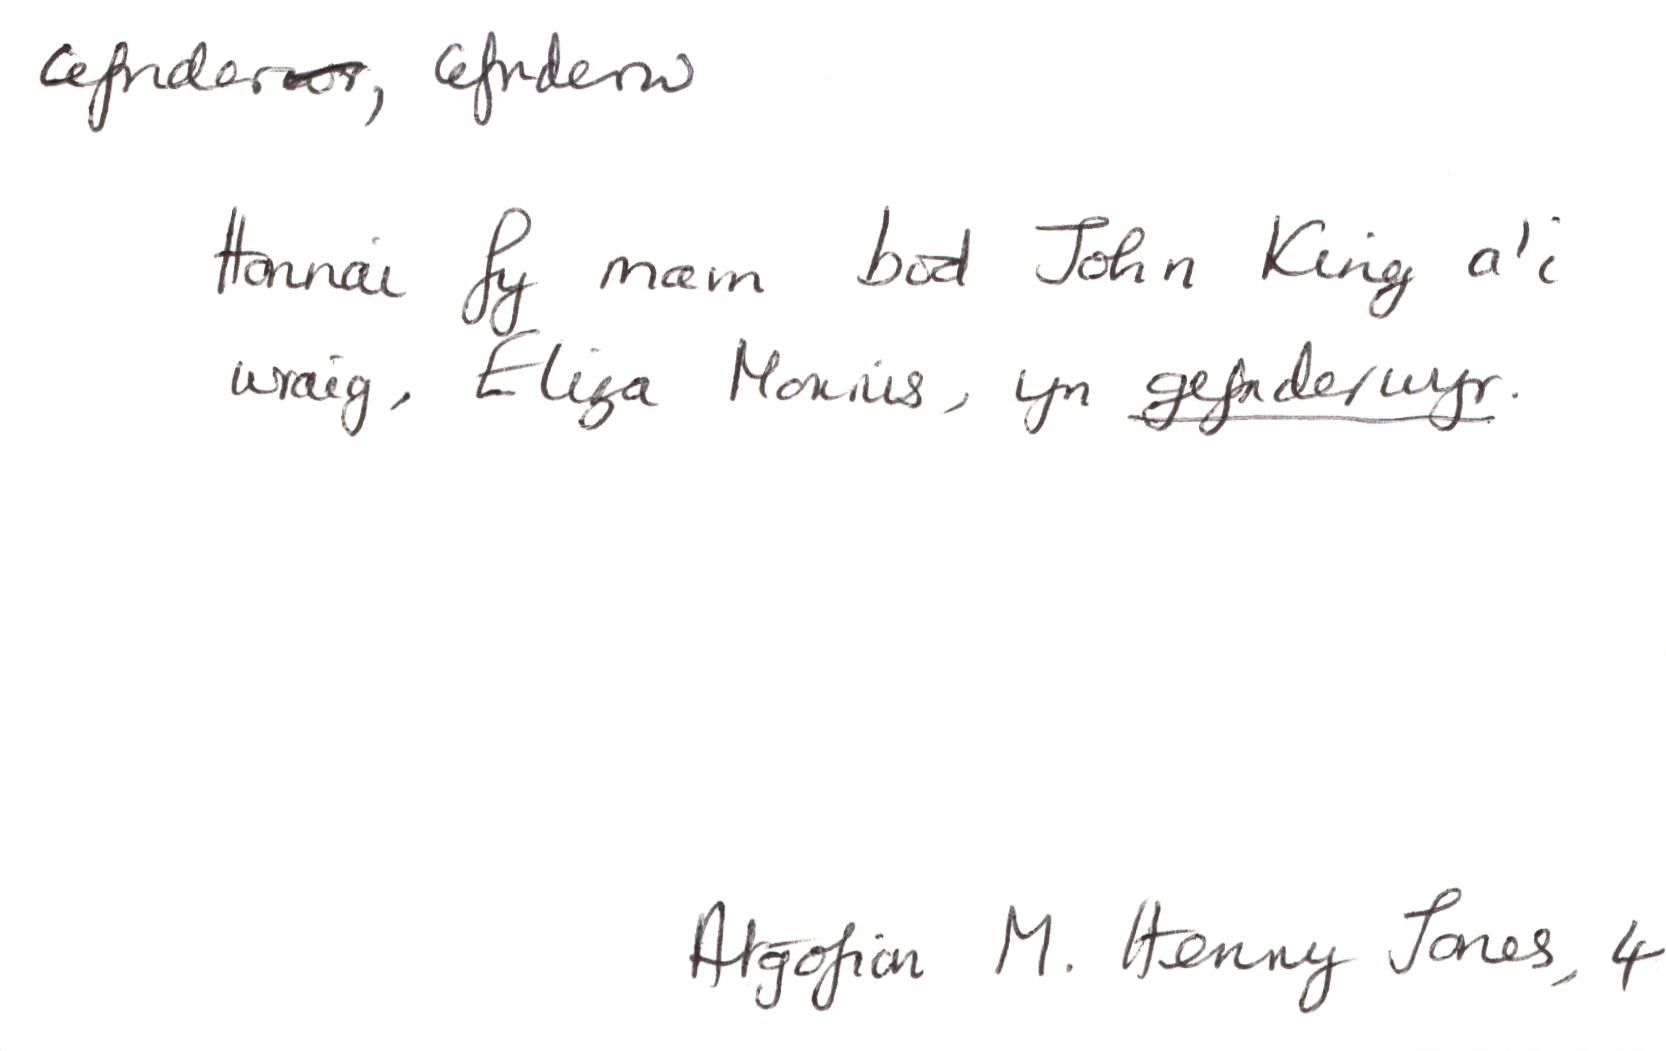 cefnder, cefnderw
Honnai fy mam bod John King a'i
wraig, Eliza Morris, yn gefnderwyr.
Atgofion M. Henry Jones, 4